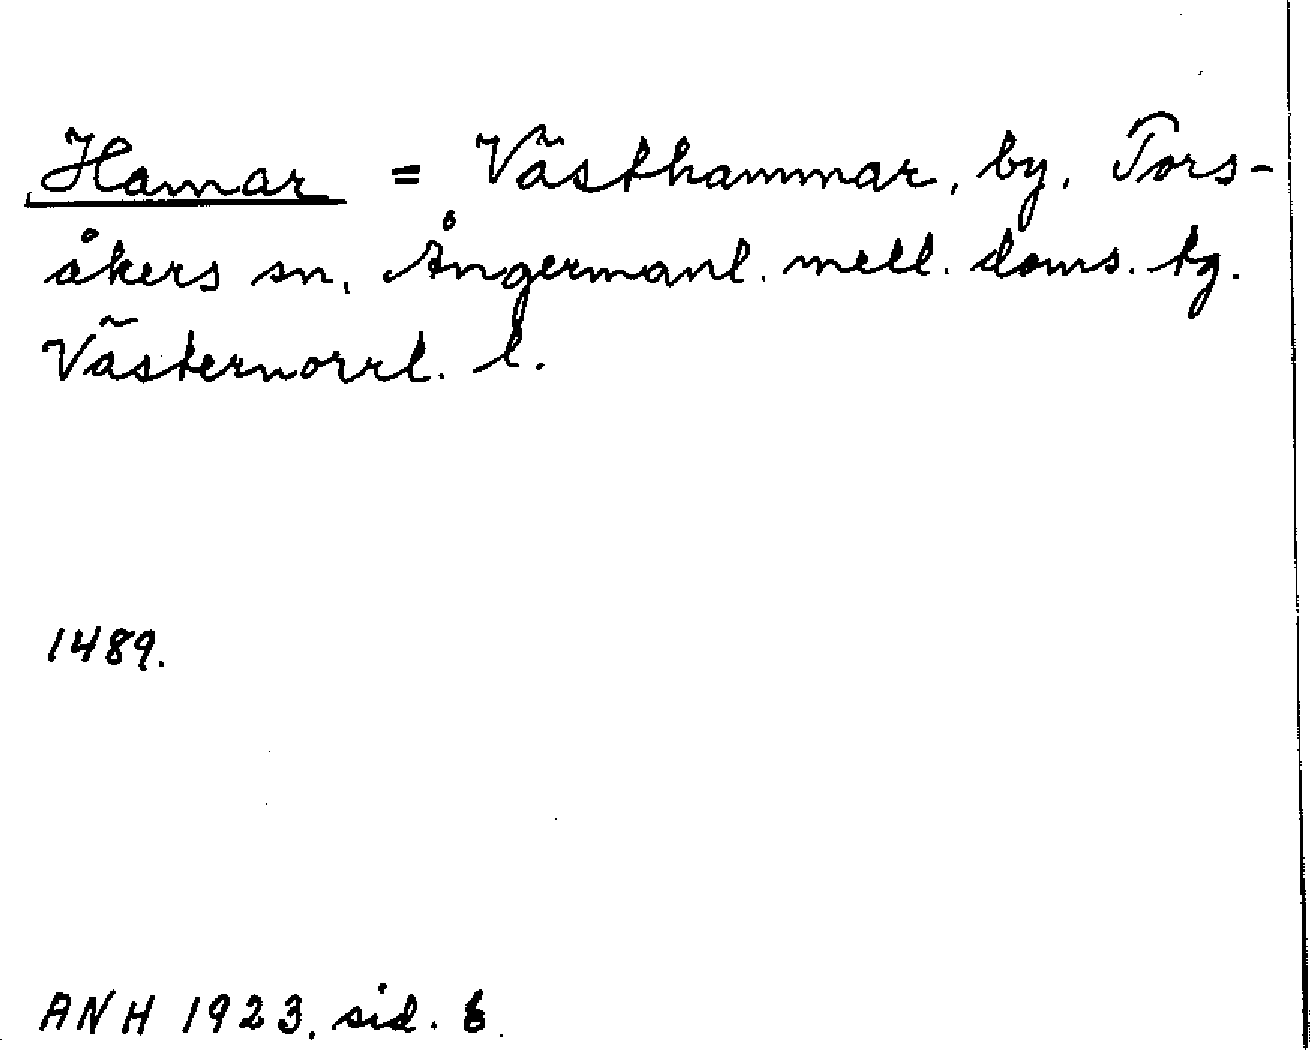 Hamar = Västhammar, by, Tors-
åkers sn, Ångermanl. mell. doms. tg.
Västernorrl. l.
1489.
ANH 1923, sid. 6.